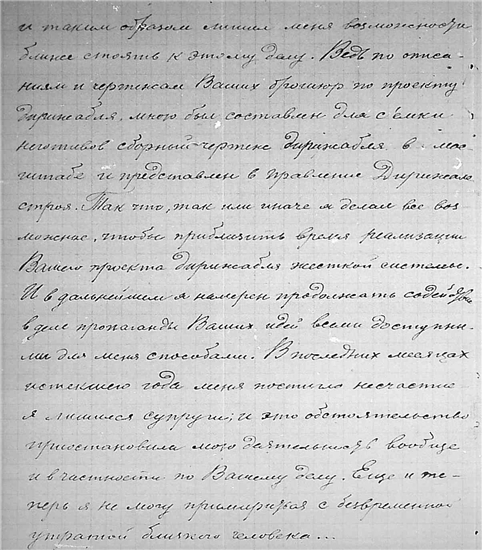 и таким образом лишил меня возможности
ближе стоять к этому делу. Ведь по описа-
ниям и чертежам Ваших брошюр по проекту
дирижабля, мною был составлен для съёмки
неготивов сборный чертеж дирижабля в мас
штабе и представлен в правление Дирижабле
строя. Так что, так или иначе я делал все воз
можное, чтобы приблизить время реализации
Вашего проекта дирижабля жесткой системы.
И в дальнейшем я намерен продолжать
в деле пропаганды Ваших идей всеми доступны-
ми для меня способами. В последних месяцах
истекшего года меня постигло несчастие
я лишился супруги; и это обстоятельство
приостановило мою деятельность вообще
и в частности по Вашему делу. Еще и те-
перь я не могу примириться с безвременной
утратой близкого человека...